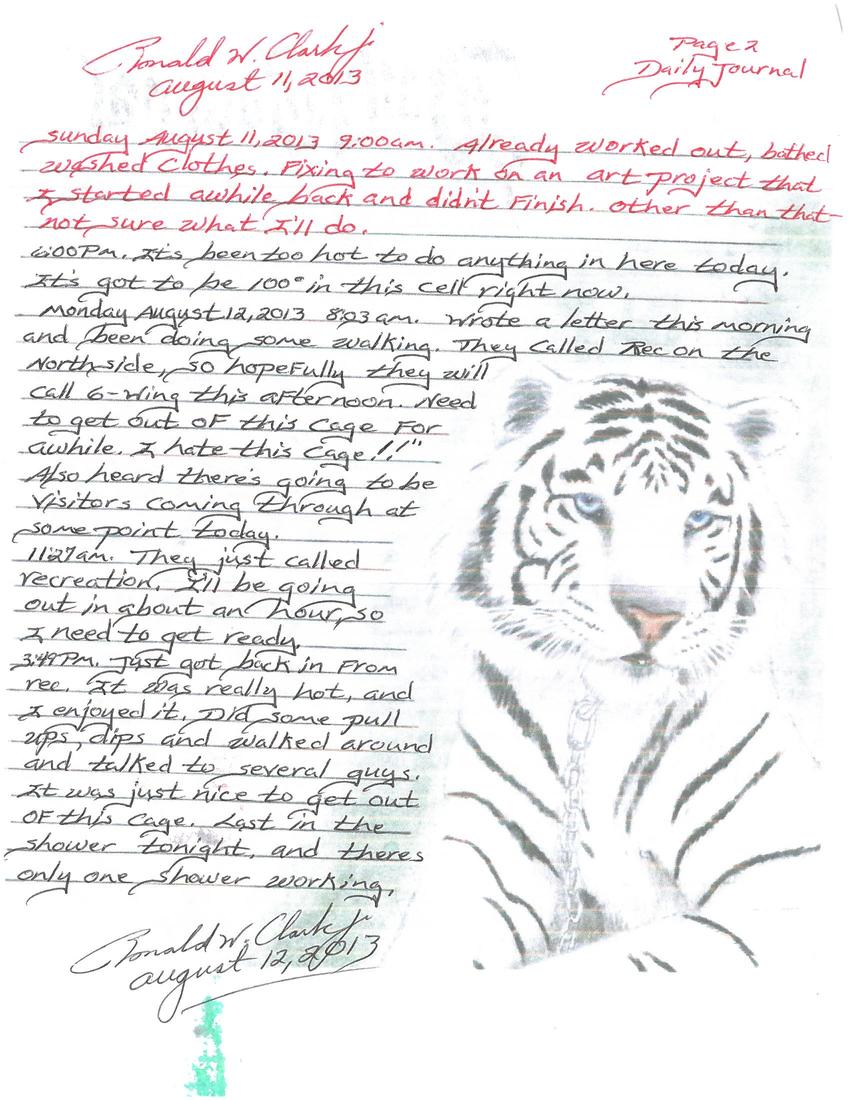 Ronald W. Clark Jr
August 11, 2013
Page 2
Daily Journal
Sunday August 11, 2013 9:00am. Already worked out, bathed
washed clothes. Fixing to work on an art project that
I started awhile back and didn't finish. Other than that
not sure what I'll do.
6:00Pm. It's been too hot to do anything in here today.
It's got to be 100° in this cell right now.
Monday August 12, 2013 8:03am. Wrote a letter this morning
and been doing some walking. They called Rec on the
North side, so hopefully they will
call 6-Wing this afternoon. Need
to get out of this cage for
awhile. I hate this cage!!"
Also heard there's going to be
visitors coming through at
some point today.
11:27am. They just called
recreation. I'll be going
out in about an hour, so
I need to get ready
3:49Pm. Just got back in from
rec. It was really hot, and
I enjoyed it. Did some pull
ups, dips and walked around
and talked to several guys.
It was just nice to get out
of this cage. Last in the
shower tonight, and theres
only one shower working.
Ronald W. Clark Jr
August 12, 2013